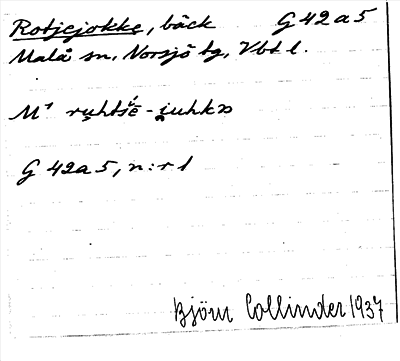 Rotjejokke, bäck G 42 a 5
Malå sn, Norsjö tg, Vbt l.
M¹ ruhtšē - i̯uhkə
G 42 a 5, n:r 1
Björn Collinder 1937